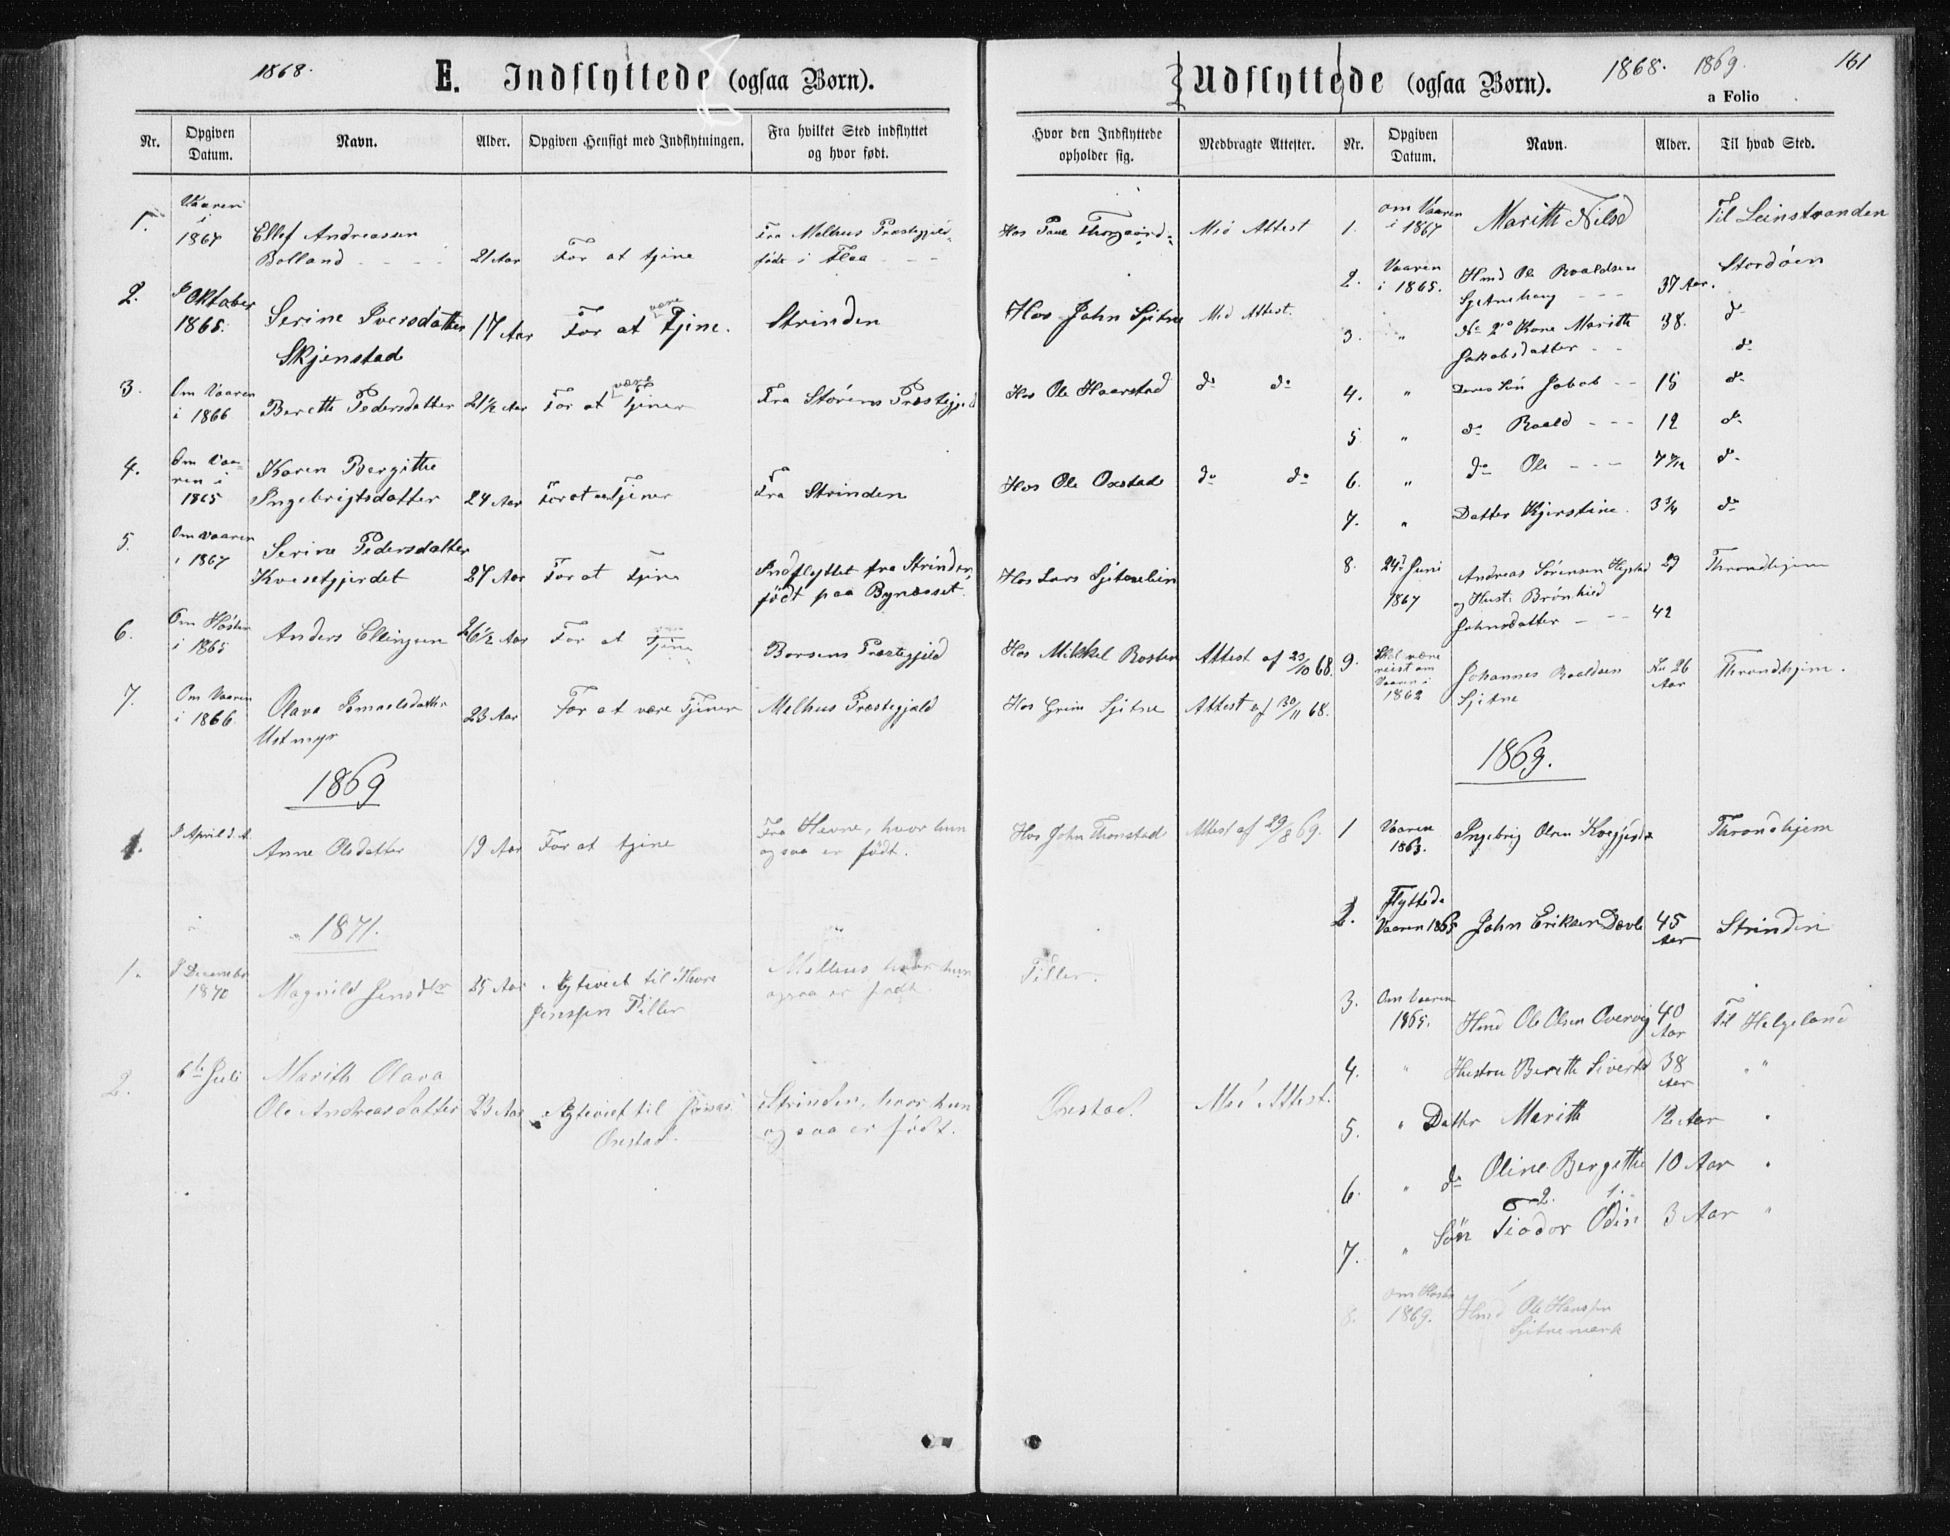 1868.
E. Indflyttede (ogsaa Børn).
Nr.
Opgiven Datum.
Navn.
Alder.
Opgiven Hensigt med Indflytningen.
Fra hvilket Sted indflyttet
og hvor født.
Hvor den Indflyttede
opholder sig.
Medbragte Attester.
1.
Vaaren
i
1867
Ellef Andreassen
Bolland
21 Aar
For at tjene
Fra Melhus Præstegjeld
født i Flaa
Hos Paul
Med Attest
2.
I Oktober
1865.
Serine Iversdatter
Skjenstad
17 Aar
For at være Tjene.
Strinden
Hos John Sjetne
Med Attest.
3.
Om Vaaren
i 1866
Berette Pedersdatter
21½ Aar
For at være Tjener
Fra Størens Præstegjeld
Hos Ole Haarstad
do do
4.
Om Vaa-
ren i
1865
Karen Bergithe
Ingebrigtsdatter
24 Aar
For at Tjener
Fra Strinden
Hos Ole Oxstad
do do
5.
Om Vaaren
i 1867
Serine Pedersdatter
Kvesetgjerdet
27 Aar
For at tjene
Indflyttet fra Strinden,
født paa Bynæsset.
Hos Lars
6.
Om Høsten
i 1865
Anders Ellingsen
26½ Aar
For at Tjene
Børsens Præstegjeld
Hos Mikkel Rosten
Attest af 23/10 68.
7.
Om Vaaren
i 1866
Olava Ismaelsdatter
Ustmyr
23 Aar
For at være Tjener
Melhus Præstegjeld
Hos Grim Sjetne
Attest af 30/11 68.
1869
1.
I April d. A.
Anne Olsdatter
19 Aar
For at tjene
Fra Hevne, hvor hun
ogsaa er født.
Hos John Thonstad
Attest af 29/8 69.
1871.
1.
I December
1870
Magnild Jensdtr
25 Aar
Ægteviet til
Jenssen Tiller
Melhus hvor hun
ogsaa er født.
Tiller.
2.
6te Juli
Marith Olava
Ole Andreasdatter
23 Aar
Ægteviet til Jonas
Oxestad.
Strinden, hvor hun
ogsaa er født.
Oxestad.
Med Attest.
Udflyttede (ogsaa Børn).
1868. 1869.
161
a Folio
Nr.
Opgiven Datum.
Navn.
Alder.
Til hvad Sted.
1.
om Vaaren
i 1867
Marith Nilsd
Til Leinstranden
2.
Vaaren
i 1865.
Hmd Ole Roaldsen
Sjetnehaug
37 Aar.
Stordøen
3.
"
Kone Marith
Jakobsdatter
38.
do
do
4.
"
Deres Søn Jakob
15
do
5
"
do Roald
12
do
6.
"
do Ole
7 9/12
do
7.
"
Datter Kjerstine.
3¾
do
8.
24de Juni
1867
Andreas Sørensen Hegstad
og Hust. Brønhild
Johnsdatter
29
42
Throndhjem
9.
Skal være
reist om
Vaaren i
1862
Johannes Roaldsen
Sjetne
Nu 26
Aar
Throndhjem.
1869.
1
Vaaren
1863.
Ingebrig Olsen
Throndhjem
2.
Flyttede
Vaaren 1865
John Eriksen
45
Aar
Strinden
3.
Om Vaaren
1865.
Hmd Ole Olsen Overvig
40
Aar
Til Helgeland
4.
"
Hustru Bereth Sivertsd
38
Aar
"
5.
"
Datter Marith
12 Aar
"
6.
"
do Oline Bergitthe
10 Aar
"
7.
"
2. 1.
Søn Teodor Odin
3 Aar
"
8.
Om Høsten
1869.
Hmd Ole Hanssen
Sjetnemark